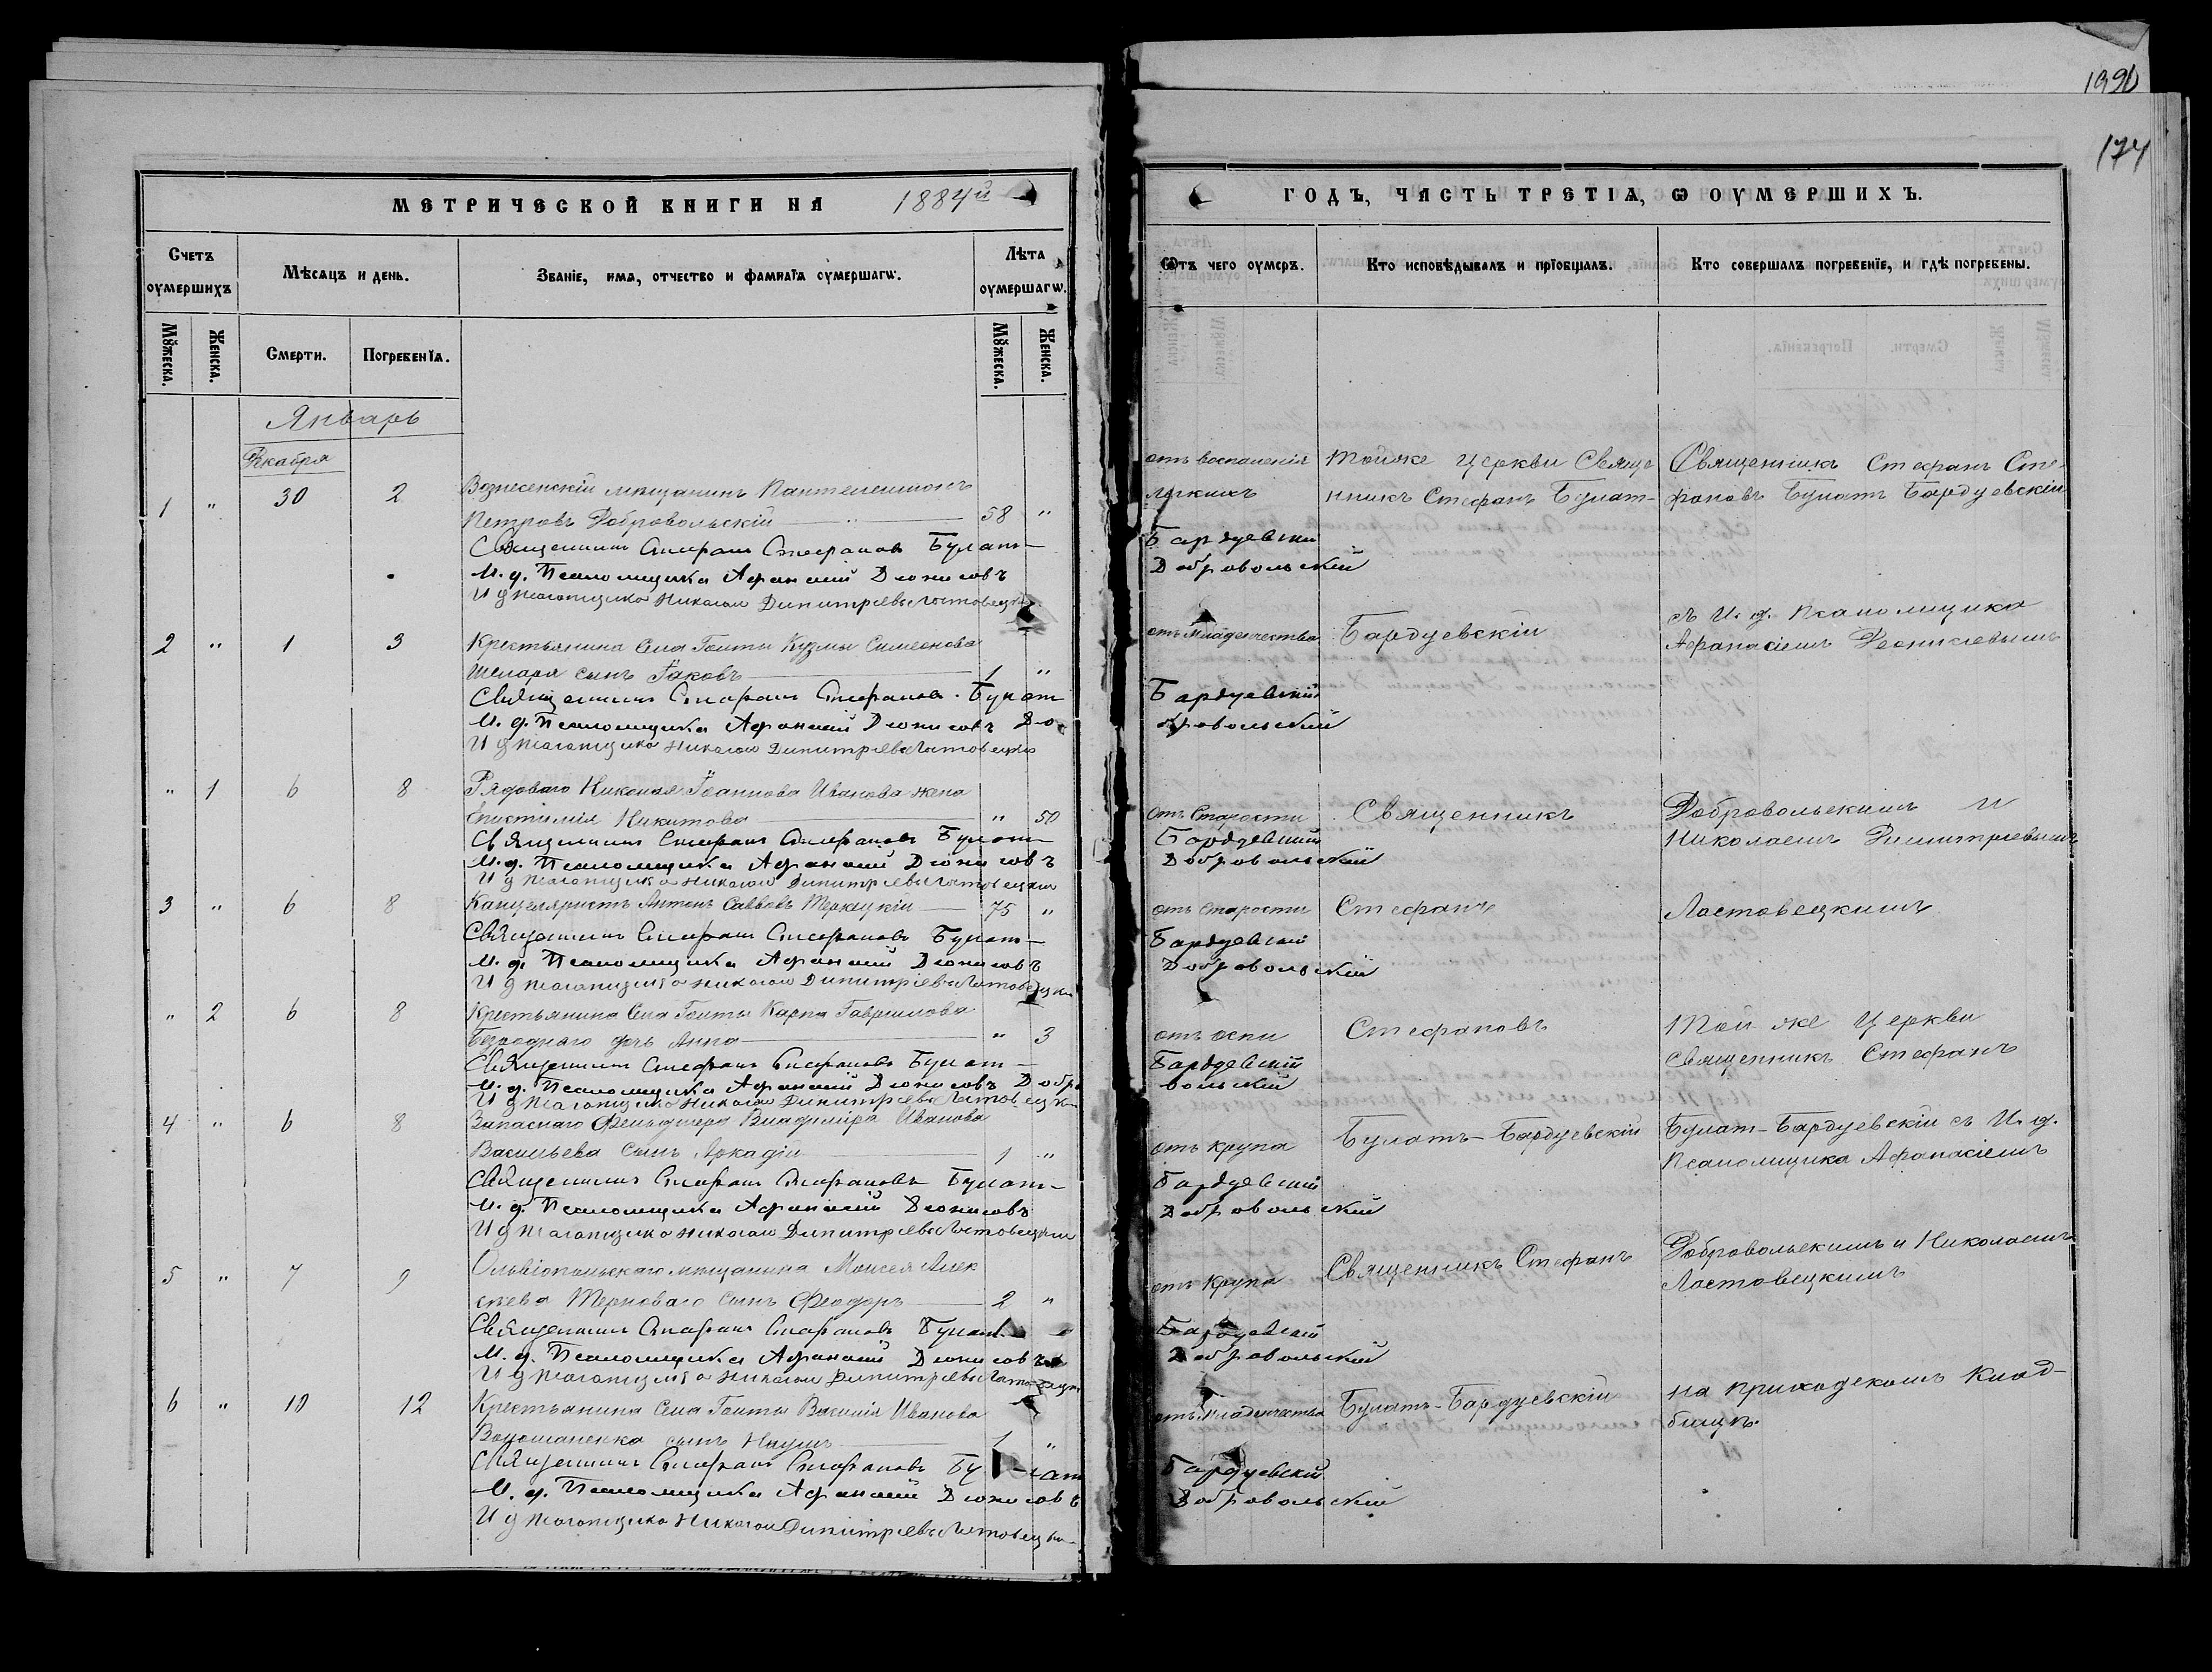 1990
174
МЕТРИЧЕСКОЙ КНИГИ НА 1884й
ГОДЪ, ЧАСТЬ ТРЕТІѦ, Ѡ ОУМЕРШИХЪ.
Счетъ оумершихъ
Мѣсѧцъ и день.
Званіе, имѧ, отчество и фамиліѧ оумершагѡ.
Лѣта оумершагѡ.
Ѿтъ чего оумеръ.
Кто исповѣдывалъ и прїобщалъ.
Кто совершалъ погребенїе, и гдѣ погребены.
Мꙋжеска.
Женска.
Смерти.
Погребенїѧ.
Мꙋжеска.
Женска.
Январь
Декабря
1 " 30 2 Вознесенскій мѣщанинъ Пантелеимонъ
Петровъ Добровольскій — " — 58 "
отъ воспаленія
легкихъ
Священникъ Стефанъ Стефановъ Булатъ-
Бардуевскій
И. д. Псаломщика Афанасій Діонисовъ
Добровольскій
И д Псаломщика Николай Димитріевъ Ластовецкій
2 " 1 3 Крестьянина Села Голты Кузмы Симеонова
Шеларя сынъ Іаковъ — 1 "
отъ младенчества
Священникъ Стефанъ Стефановъ Булатъ
Бардуевскій
И. д. Псаломщика Афанасій Діонисовъ До-
бровольскій
И д Псаломщика Николай Димитріевъ Ластовецкій
" 1 6 8 Рядоваго Николая Іоаннова Иванова жена
Епистимія Никитова — " 50
отъ Старости
Священникъ Стефанъ Стефановъ Булатъ-
Бардуевскій
И. д. Псаломщика Афанасій Діонисовъ
Добровольскій
И д Псаломщика Николай Димитріевъ Ластовецкій
3 " 6 8 Канцеляристъ Антонъ Саввовъ — 75 "
отъ старости
Священникъ Стефанъ Стефановъ Булатъ-
Бардуевскій
И. д. Псаломщика Афанасій Діонисовъ
Добровольскій
И д Псаломщика Николай Димитріевъ Ластовецкій
" 2 6 8 Крестьянина Села Голты Карпа Гаврилова
Безроднаго дочь Анна — " 3
отъ оспы
Священникъ Стефанъ Стефановъ Булатъ-
Бардуевскій
И. д. Псаломщика Афанасій Діонисовъ Добро
вольскій
И д Псаломщика Николай Димитріевъ Ластовецкій
4 " 6 8 Запаснаго Фельдшера Владиміра Иванова
Васильева Сынъ Аркадій — 1 "
отъ крупа
Священникъ Стефанъ Стефановъ Булатъ-
Бардуевскій
И. д. Псаломщика Афанасій Діонисовъ
Добровольскій
И д Псаломщика Николай Димитріевъ Ластовецкій
5 " 7 9 Ольвіопольскаго мѣщанина Моисея Алек
сѣева Терноваго Сынъ Феодоръ — 2 "
отъ Крупа
Священникъ Стефанъ Стефановъ Булатъ-
Бардуевскій
И. д. Псаломщика Афанасій Діонисовъ
Добровольскій
И д Псаломщика Николай Димитріевъ Ластовецкій
6 " 10 12 Крестьянина Села Голты Василія Иванова
сынъ Наумъ — 1 "
отъ младенчества
Священникъ Стефанъ Стефановъ Булатъ
Бардуевскій
И. д. Псаломщика Афанасій Діонисовъ
Добровольскій
И д Псаломщика Николай Димитріевъ Ластовецкій
Тойже Церкви Свяще
нникъ Стефанъ Булат-
Бардуевскій
Священникъ
Стефанъ
Стефановъ
Булатъ-Бардуевскій
Священникъ Стефанъ
Булатъ-Бардуевскій
Священникъ Стефанъ Сте-
фановъ Булатъ Бардуевскій
съ И. д. Псаломщика
Афанасіемъ Деонисіевымъ
Добровольскимъ и
Николаемъ Димитріевымъ
Ластовецкимъ
Той же Церкви
священникъ Стефанъ
Булат-Бардуевскій съ И. д.
Псаломщика Афанасіемъ
Добровольскимъ и Николаемъ
Ластовецкимъ
на приходскомъ Клад-
бищѣ.